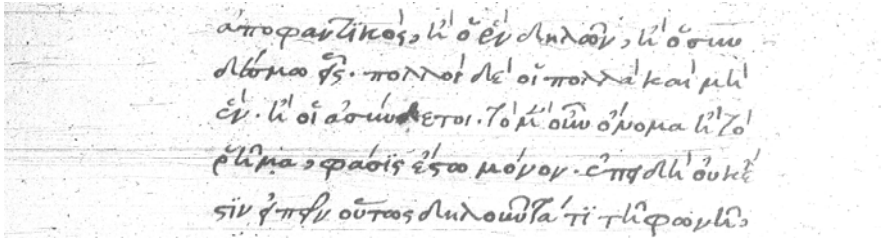 ἀποφαντϊκός, ἢ ὁ ἓν δηλῶν, ἢ ὁ συν
δέσμω εἷς· πολλοὶ δὲ οἱ πολλὰ καὶ μὴ
ἕν· ἢ οἱ ἀσύνδετοι· τὸ μὲν οὖν ὄνομα ἢ τὸ
ῥῆμα, φάσϊς ἔστω μόνον· ἐπειδὴ οὐκ ἔ
στϊν εἰπεῖν οὕτως δηλοῦντά τϊ τῆ φωνῆ,